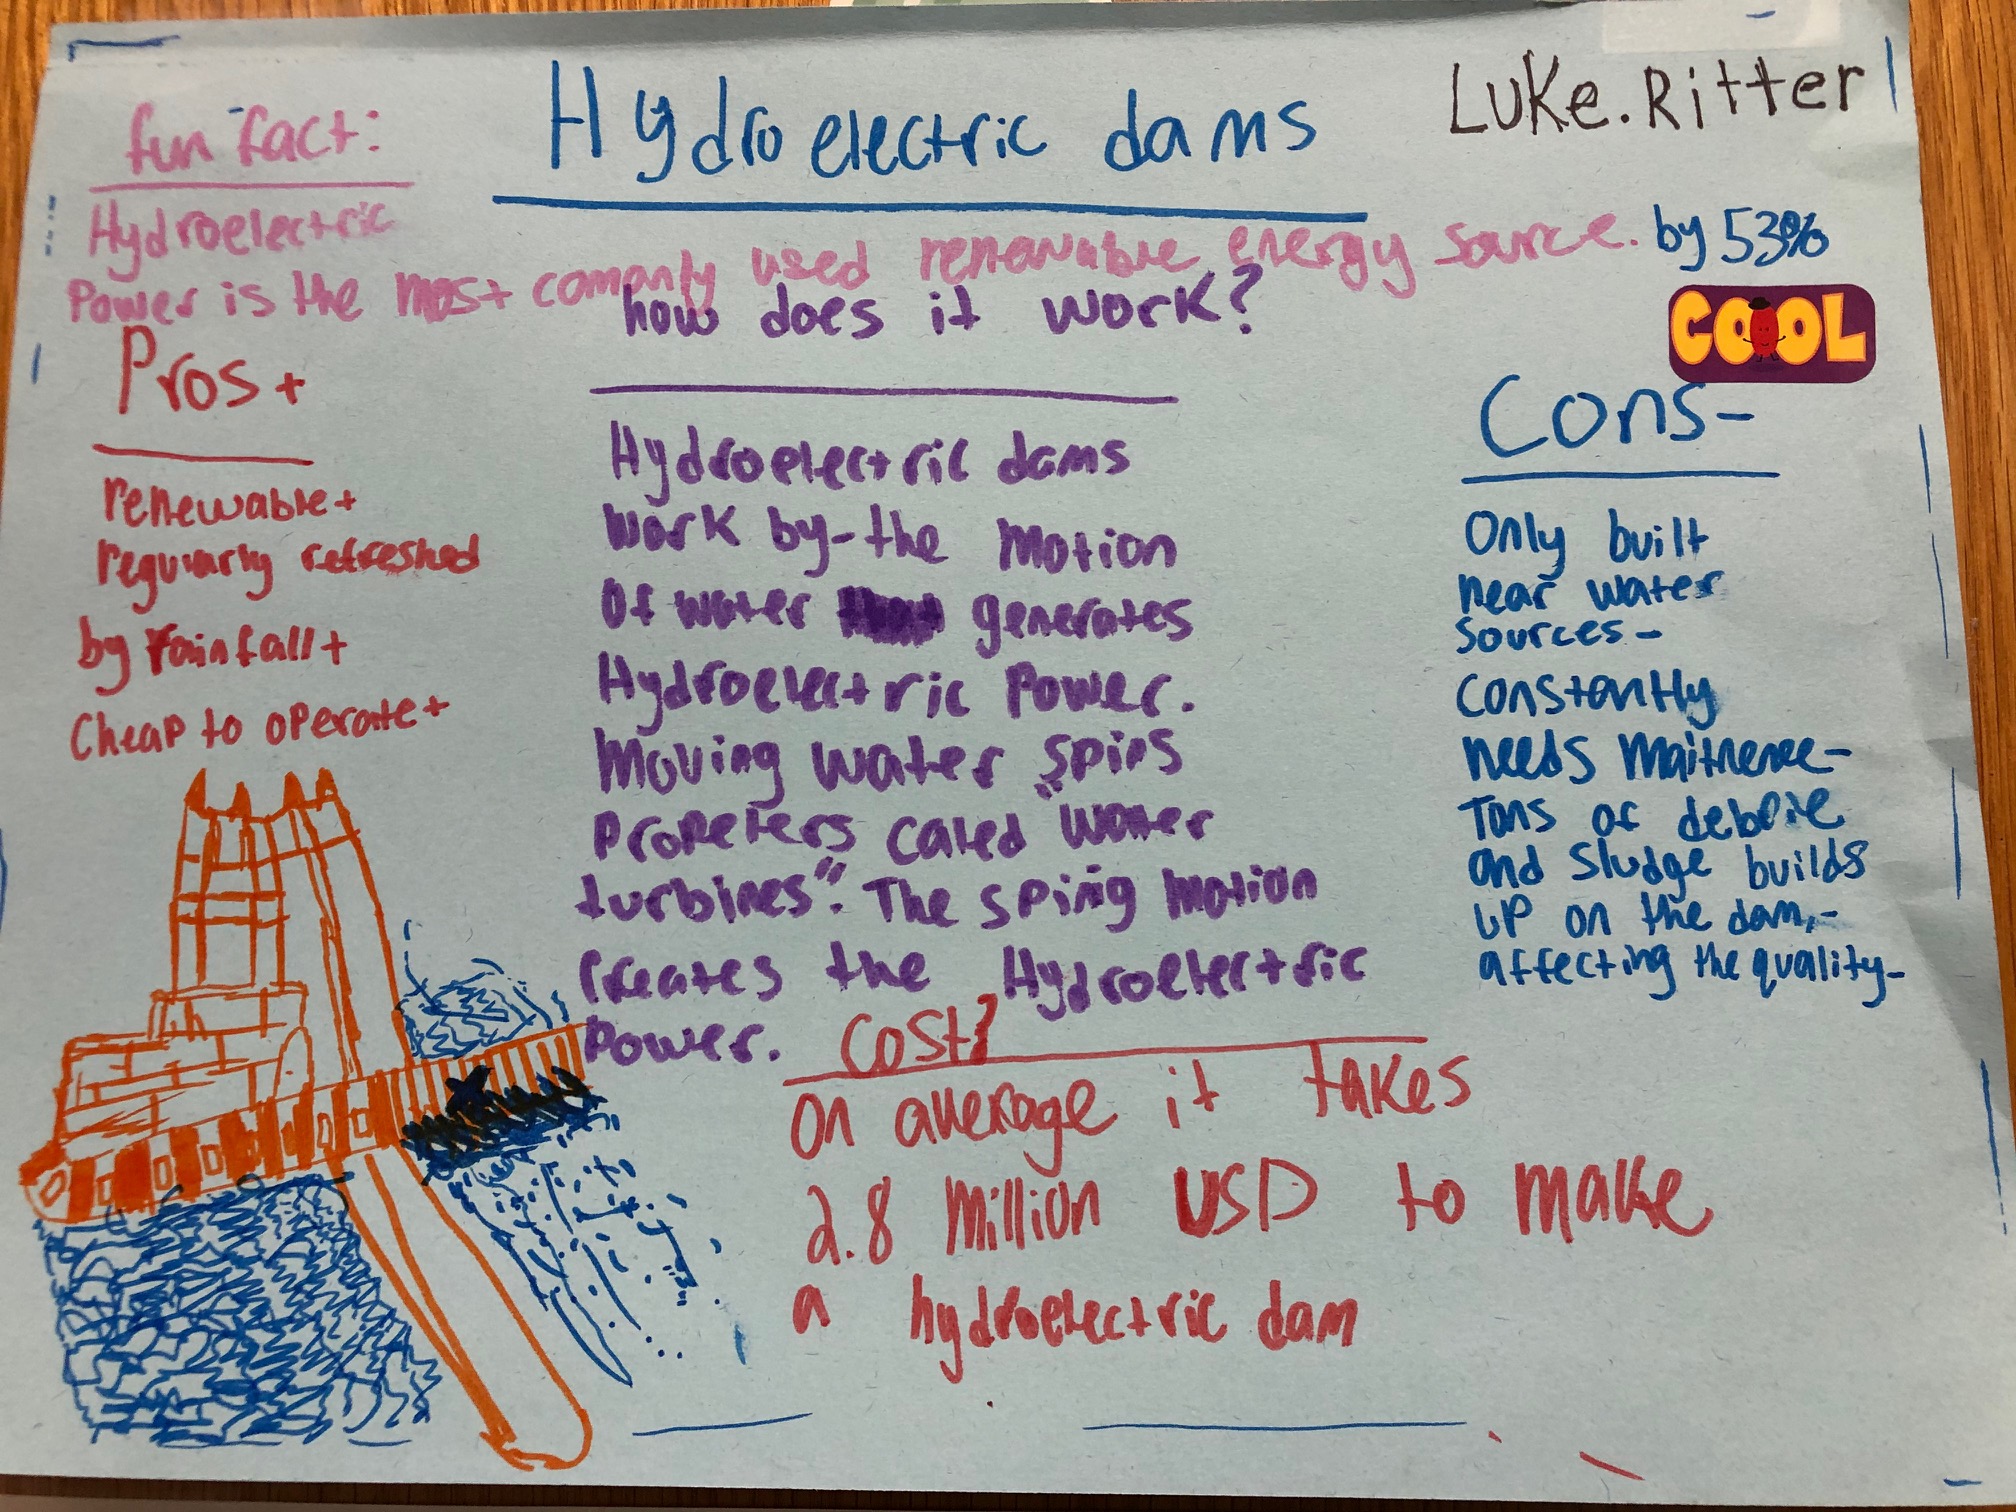 Hydroelectric dams
Luke.Ritter
fun fact:
Hydroelectric
Power is the most comonly used renewable energy source. by 53%
COOL
Pros +
renewable+
regularly refreshed
by rainfall+
Cheap to operate+
how does it work?
Hydroelectric dams
work by-the motion
Of water generates
Hydroelectric Power.
Moving water spins
Propelers called "water
turbines". The sping motion
Creates the Hydroelectric
Power.
Cons-
Only built
near water
sources-
constantly
needs maitnence-
Tons of debrie
and sludge builds
up on the dam,-
affecting the quality-
Cost?
On average it takes
2.8 million USD to make
a hydroelectric dam